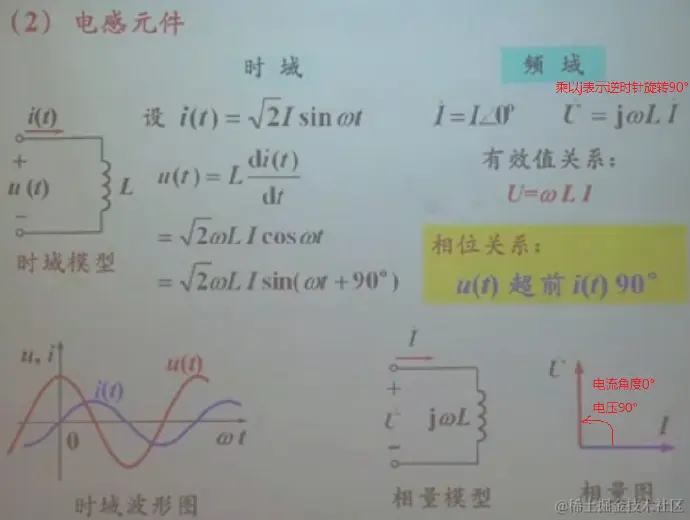 (2) 电感元件
时域
频域
乘以j表示逆时针旋转90°
i(t)
+
u(t)
−
L
时域模型
设 i(t) = √2 I sin ωt
u(t) = L di(t)/dt
= √2 ωL I cos ωt
= √2 ωL I sin(ωt + 90°)
İ = I∠0° U̇ = jωL İ
有效值关系:
U=ωLI
相位关系:
u(t) 超前 i(t) 90°
u, i
u(t)
i(t)
0
ωt
时域波形图
İ
+
U̇
−
jωL
相量模型
U̇
电流角度0°
电压90°
İ
相量图
@稀土掘金技术社区